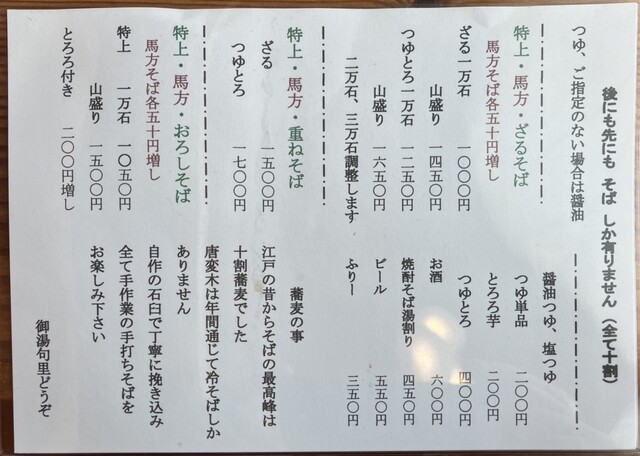 後にも先にも そば しか有りません（全て十割）
つゆ、ご指定のない場合は醤油
特上・馬方・ざるそば
馬方そば各五十円増し
ざる一万石 一〇〇〇円
山盛り 一四五〇円
つゆとろ一万石 一二五〇円
山盛り 一六五〇円
二万石、三万石調整します
特上・馬方・重ねそば
ざる 一五〇〇円
つゆとろ 一七〇〇円
特上・馬方・おろしそば
馬方そば各五十円増し
特上 一万石 一〇五〇円
山盛り 一五〇〇円
とろろ付き 二〇〇円増し
醤油つゆ、塩つゆ
つゆ単品 二〇〇円
とろろ芋 二〇〇円
つゆとろ 四〇〇円
お酒 六〇〇円
焼酎そば湯割り 四五〇円
ビール 五五〇円
ふりー 三五〇円
蕎麦の事
江戸の昔からそばの最高峰は
十割蕎麦でした
唐変木は年間通じて冷そばしか
ありません
自作の石臼で丁寧に挽き込み
全て手作業の手打ちそばを
お楽しみ下さい
御湯句里どうぞ